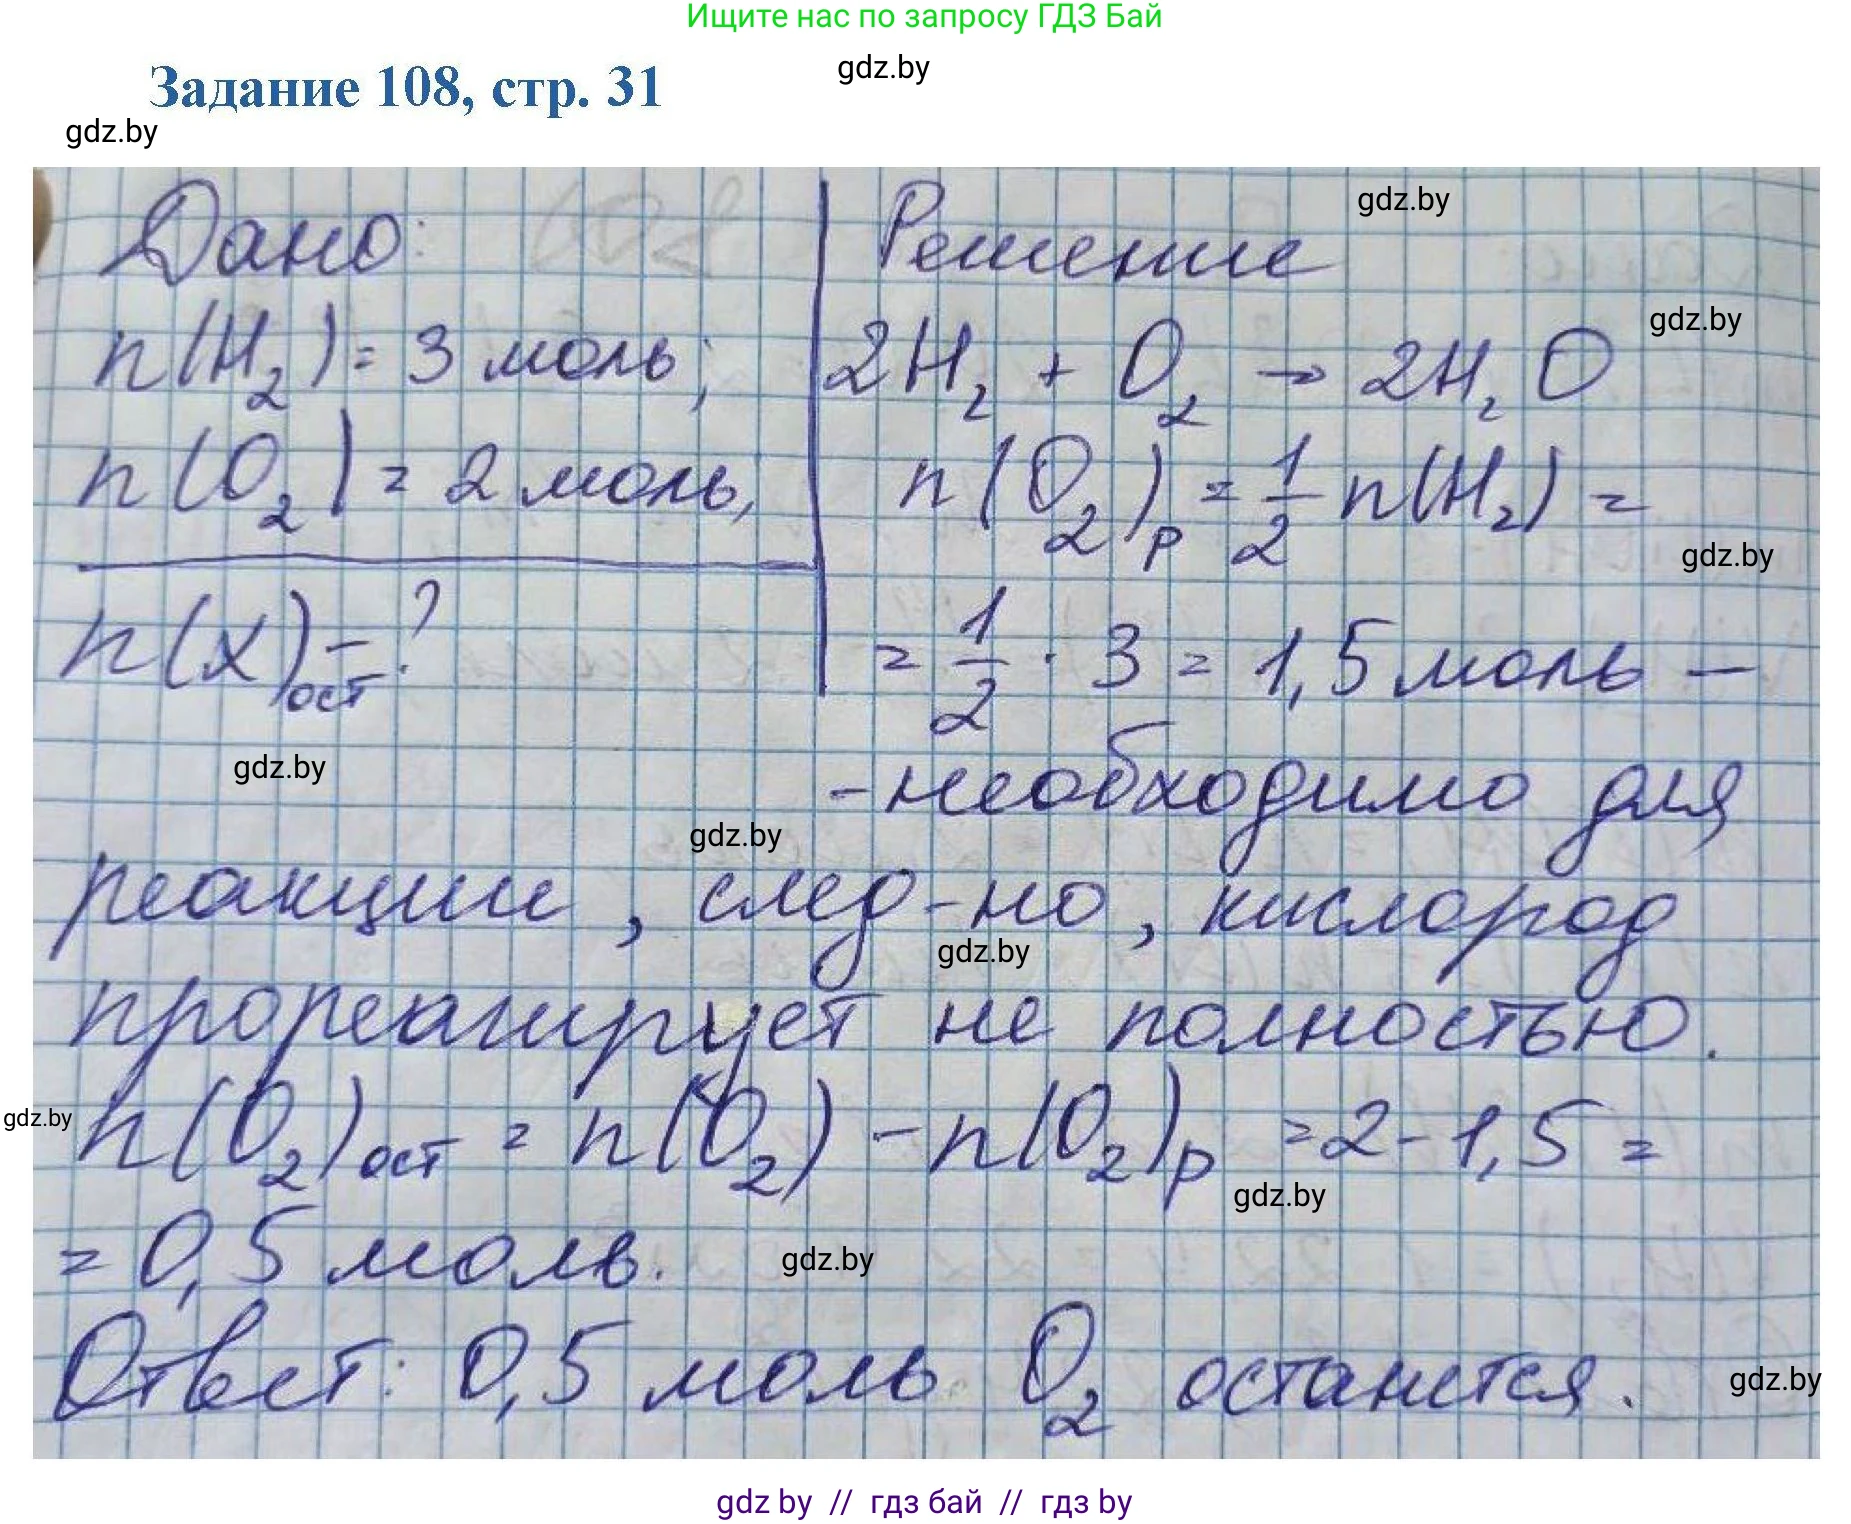 Ищите нас по запросу ГДЗ Бай
gdz.by
Задание 108, стр. 31
gdz.by
Дано: 108
n(H₂) = 3 моль;
n(O₂) = 2 моль,
n(x)ост - ?
Решение
gdz.by
2H₂ + O₂ → 2H₂O
gdz.by
n(O₂)р = 1/2 n(H₂) =
gdz.by
= 1/2 · 3 = 1,5 моль –
gdz.by
- необходимо для
gdz.by
реакции, след-но, кислород
gdz.by
прореагирует не полностью.
gdz.by
n(O₂)ост = n(O₂) - n(O₂)р = 2 - 1,5 =
gdz.by
= 0,5 моль.
gdz.by
Ответ: 0,5 моль O₂ останется.
gdz.by
gdz by // гдз бай // гдз by